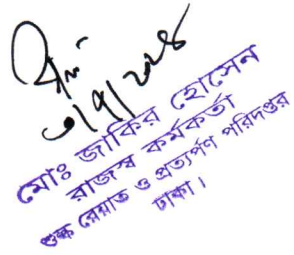 ৩/৭/২০২৪
মোঃ জাকির হোসেন
রাজস্ব কর্মকর্তা
শুল্ক রেয়াত ও প্রত্যর্পণ পরিদপ্তর
ঢাকা।